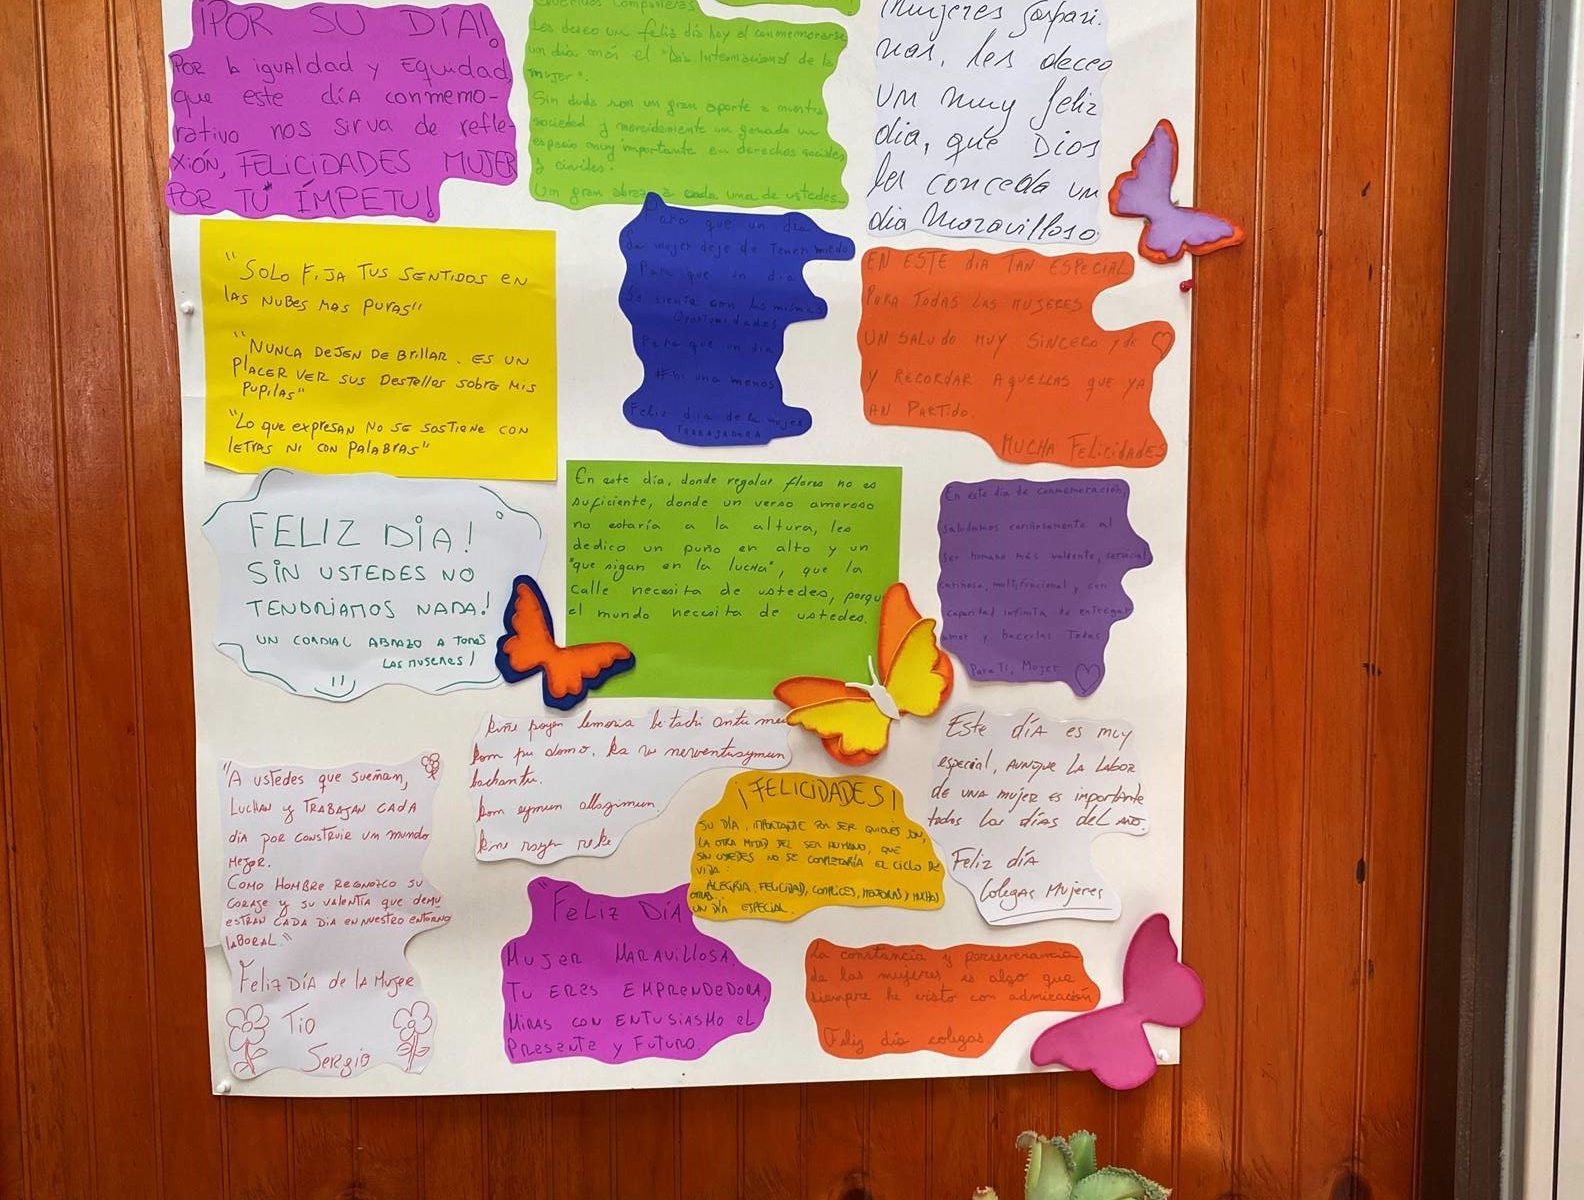 ¡POR SU DÍA!
POR la igualdad y EQUIDAD,
que este día conmemo-
rativo nos sirva de refle-
xión, FELICIDADES MUJER
POR TÚ ÍMPETU!
Queridas Compañeras
Les deseo un feliz día hoy al conmemorarse
un día más el "Día Internacional de la
mujer".
Sin duda son un gran aporte a nuestra
sociedad y merecidamente un ganado un
espacio muy importante en derechos sociales
y civiles.
Un gran abrazo a cada una de ustedes
Mujeres Gaspari.
nas, les deceo
un muy feliz
dia, que Dios
les conceda un
dia Maravilloso.
"SOLO FIJA TUS SENTIDOS EN
LAS NUBES MAS PURAS"
"NUNCA DEJEN DE BRILLAR. ES UN
PLACER VER SUS DESTELLOS SOBRE MIS
PUPILAS"
"LO QUE EXPRESAN NO SE SOSTIENE CON
LETRAS NI CON PALABRAS"
Para que un día
la mujer deje de tener miedo
Para que un día
Se sienta con las mismas
Oportunidades
Para que un día
#Ni una menos
Feliz dia de la mujer
TRABAJADORA
EN ESTE DIA TAN ESPECIAL
PARA TODAS LAS MUJERES
UN SALUDO MUY SINCERO y de ♡
Y RECORDAR AQUELLAS QUE YA
AN PARTIDO.
MUCHA FELICIDADES
FELIZ DÍA!
SIN USTEDES NO
TENDRIAMOS NADA!
UN CORDIAL ABRAZO A TODAS
LAS MUJERES!
En este día, donde regalar flores no es
suficiente, donde un verso amoroso
no estaría a la altura, les
dedico un puño en alto y un
"que sigan en la lucha", que la
calle necesita de ustedes, porque
el mundo necesita de ustedes.
En este día de conmemoración,
saludamos cariñosamente al
ser humano más valiente, servicial
cariñosa, multifuncional y con
capacidad infinita de entregar
amor y hacerlas Todas
Para Ti, Mujer ♡
kom pu domo. ka
kom eymun
Este día es muy
especial, AUNQUE LA LABOR
DE UNA MUJER ES importante
todos los días del año.
Feliz día
Colegas Mujeres
"A ustedes que sueñan,
LUCHAN y TRABAJAN CADA
día POR CONSTRUIR UM mundo
MEJOR.
COMO HOMBRE RECONOZCO SU
CORAJE y SU VALENTÍA QUE DEMU
ESTRAN CADA DIA EN NUESTRO ENTORNO
LABORAL."
Feliz DÍA de LA Mujer
Tio
Sergio
¡FELICIDADES!
SU DÍA, IMPORTANTE POR SER QUIENES SON,
LA OTRA MITAD DEL SER HUMANO, QUE
SIN USTEDES NO SE COMPLETARÍA EL CICLO DE
VIDA.
ALEGRIA, FELICIDAD, COMPLICES, MOTORAS y MUCHAS
OTRAS.
UN DÍA ESPECIAL.
"Feliz DÍA
MUJER MARAVILLOSA.
TU ERES EMPRENDEDORA,
MIRAS CON ENTUSIASMO EL
PRESENTE Y FUTURO.
La constancia y perseverancia
de las mujeres es algo que
siempre he visto con admiración
Feliz día colegas